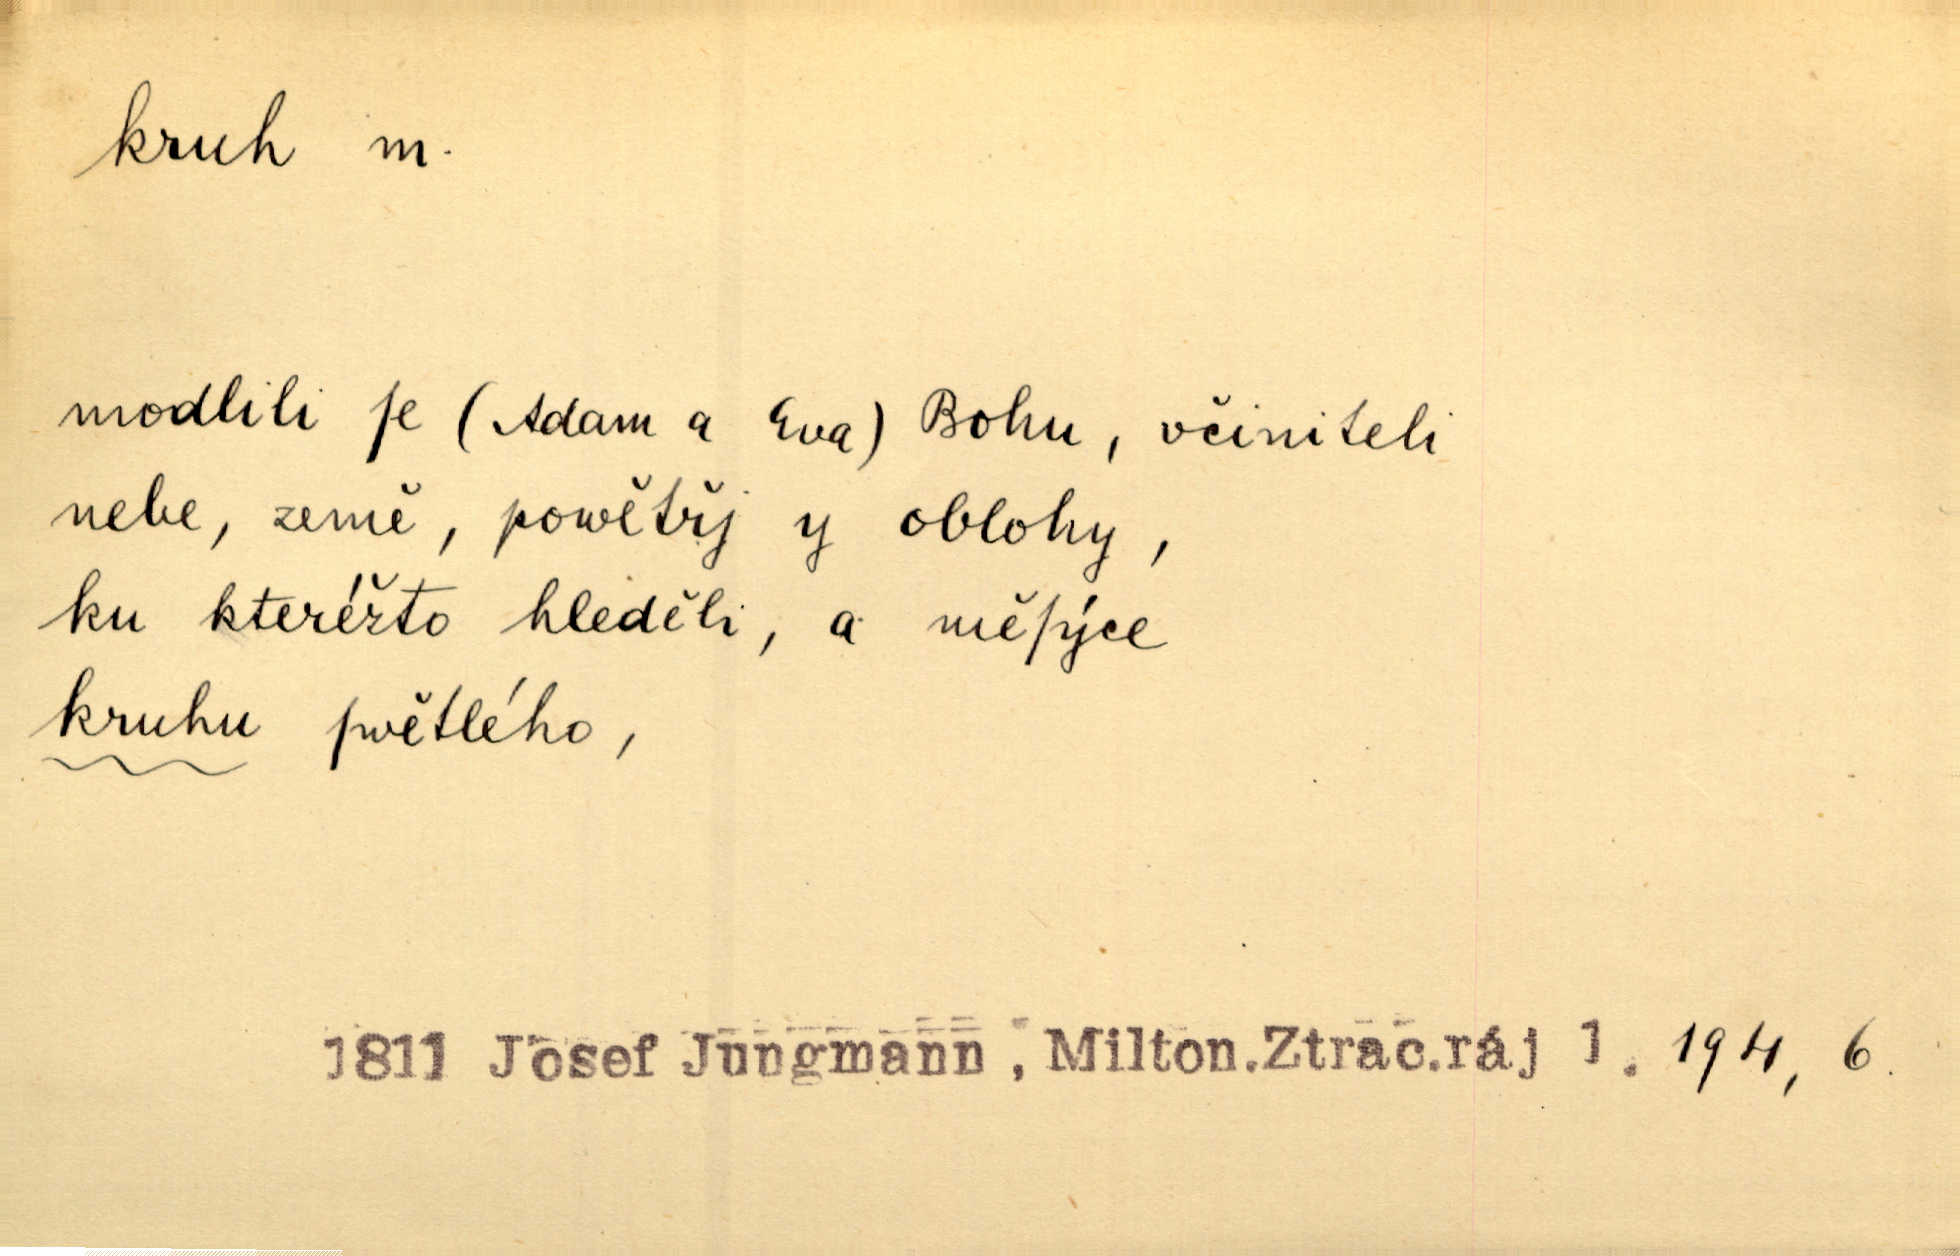 kruh m.
modlili ſe (Adam a Eva) Bohu, včiniteli
nebe, země, powětřj y oblohy,
ku kteréžto hleděli, a měſýce
kruhu ſwětlého,
1811 Josef Jungmann, Milton.Ztrac.ráj 1. 194, 6.